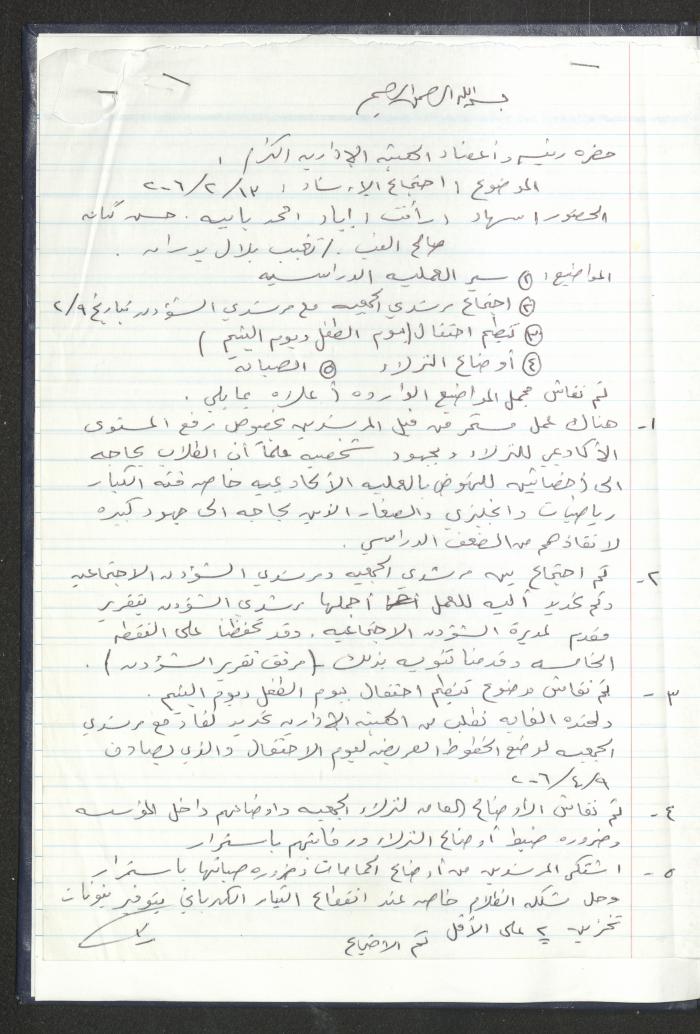 بسم الله الرحمن الرحيم
حضرة رئيس وأعضاء الهيئة الإدارية الكرام ،
الموضوع : اجتماع الإرشاد ، ٢٠٠٦/٢/١٣
الحضور : سهاد ، رأفت ، اياد ، امجد ، حسن
صالح / تغيب بلال بدران .
المواضيع : ① سير العملية الدراسية
② اجتماع مرشدي الجمعية مع مرشدي الشؤون بتاريخ ٢/٩
③ تنظيم احتفال (يوم الطفل ويوم اليتيم)
④ أوضاع النزلاء ⑤ الصيانة
تم نقاش مجمل المواضيع الواردة أعلاه بما يلي .
١- هناك عمل مستمر من قبل المرشدين بخصوص رفع المستوى
الأكاديمي للنزلاء وبجهود شخصية علماً أن الطلاب بحاجة
الى أخصائيين للنهوض بالعملية الأكاديمية خاصة فئة الكبار
رياضيات وانجليزي والصغار الذين بحاجة الى جهود كبيرة
لانقاذهم من الضعف الدراسي .
٢- تم اجتماع بين مرشدي الجمعية ومرشدي الشؤون الاجتماعية
وتم آلية للعمل أجملها مرشدي الشؤون بتقرير
مقدم لمديرة الشؤون الاجتماعية . وقد تحفظنا على النقطة
الخامسة وقدمنا تنويه بذلك - (مرفق تقرير الشؤون) .
٣- تم نقاش موضوع تنظيم احتفال بيوم الطفل ويوم اليتيم .
ولهذه الغاية نطلب من الهيئة الإدارية تحديد لقاء مع مرشدي
الجمعية لوضع الخطوط العريضة ليوم الاحتفال والذي يصادف
٢٠٠٦/٤/٩
٤- تم نقاش الأوضاع العامة لنزلاء الجمعية وأوضاعهم داخل المؤسسة
وضرورة ضبط أوضاع النزلاء ورقابتهم باستمرار
٥- اشتكى المرشدين من أوضاع الحمامات وضرورة صيانتها باستمرار
وحل مشكلة الظلام خاصة عند انقطاع التيار الكهربائي بتوفير نيونات
تخزين ٢ على الأقل
تم الاجتماع